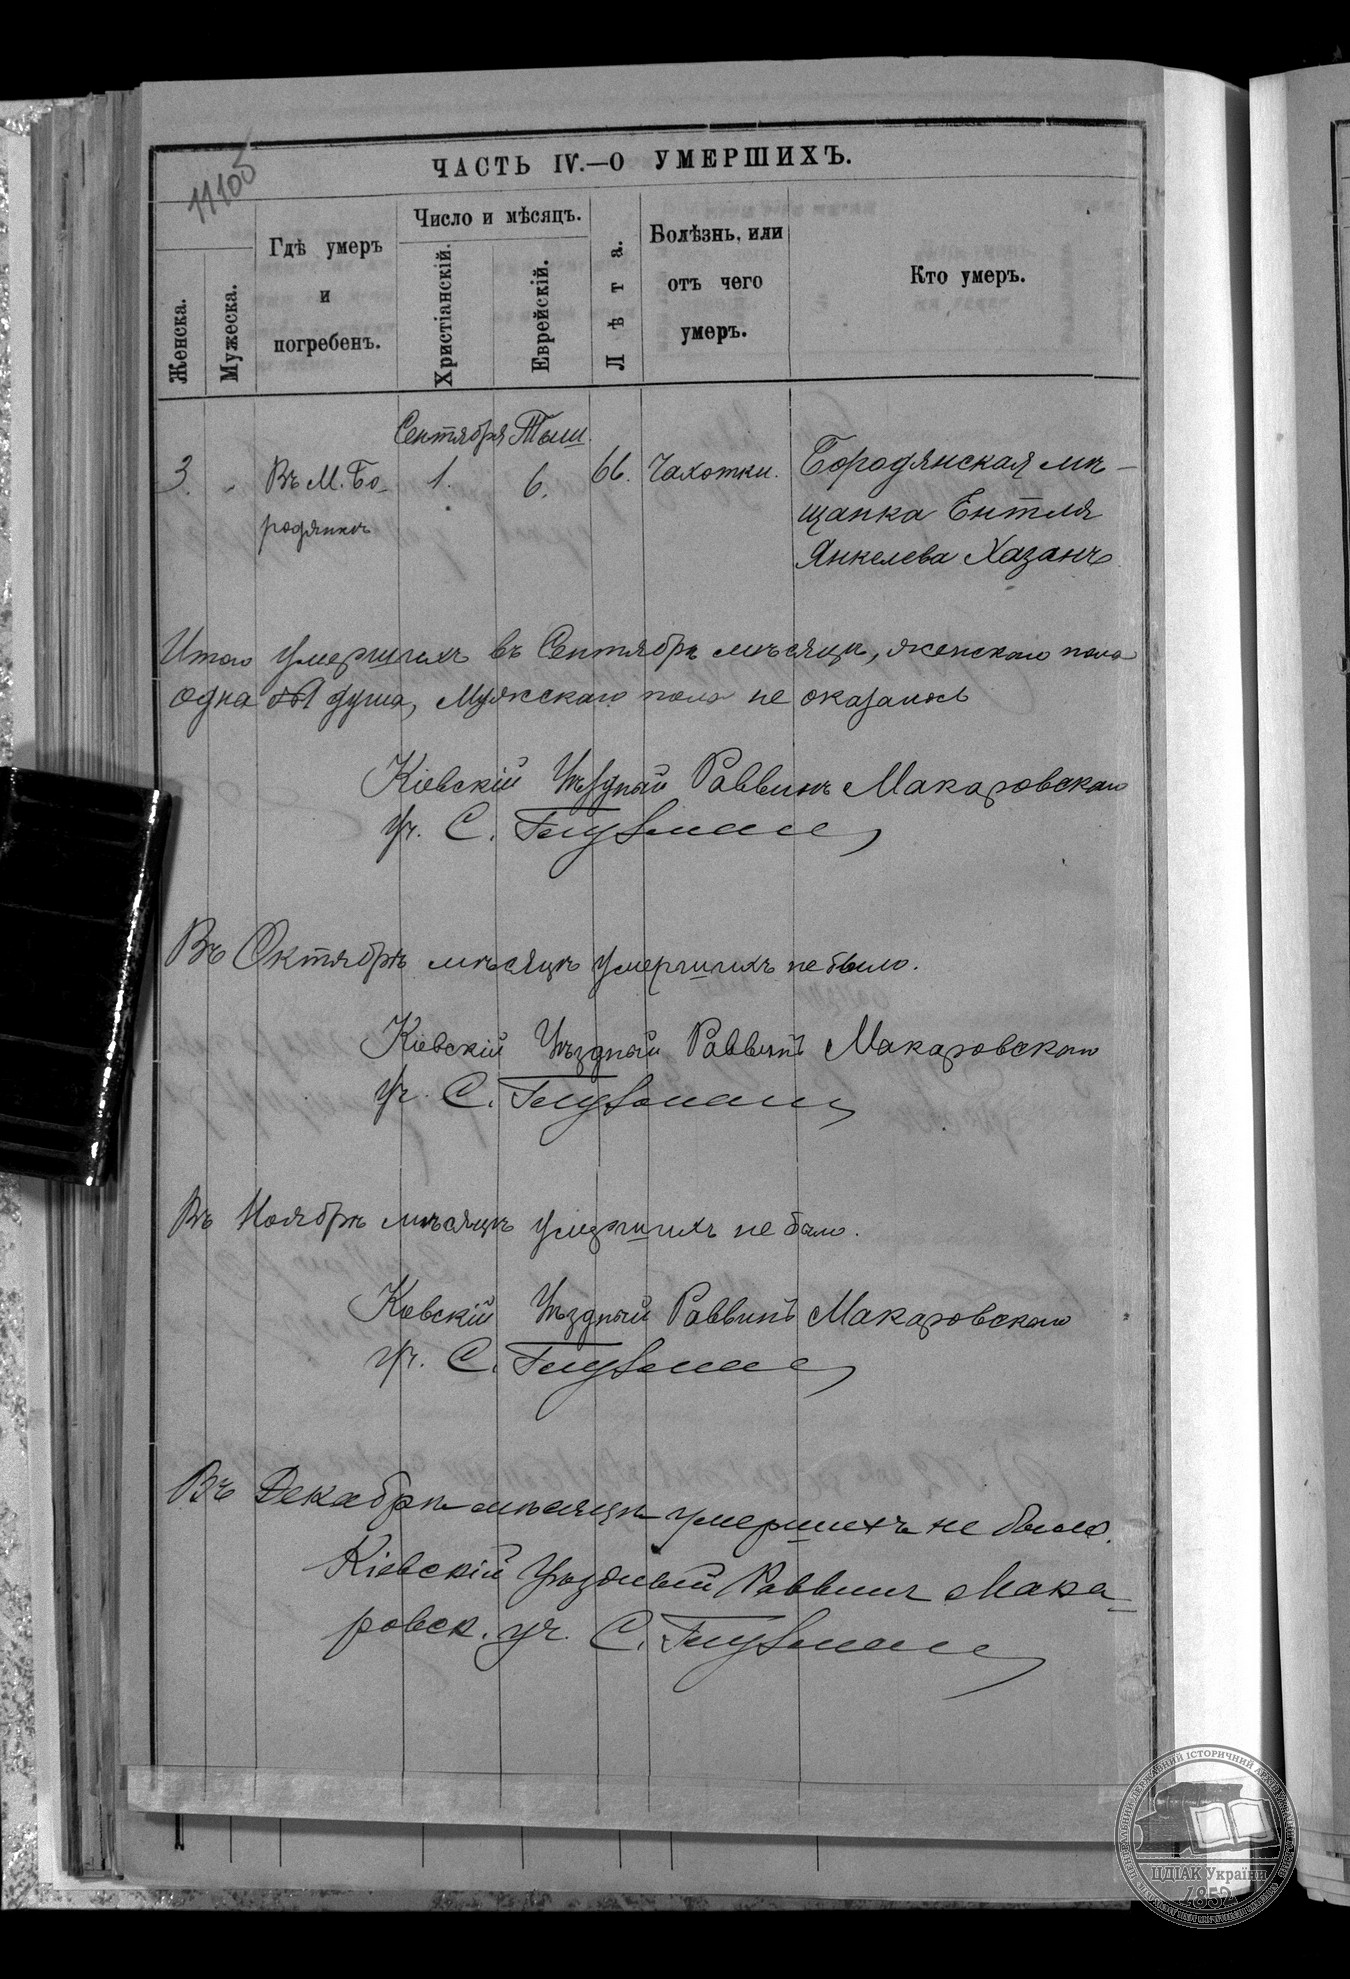 11105
ЧАСТЬ IV.—О УМЕРШИХЪ.
Женска.
Мужеска.
Гдѣ умеръ
и
погребенъ.
Число и мѣсяцъ.
Христіанскій.
Еврейскій.
Лѣта.
Болѣзнь, или
отъ чего
умеръ.
Кто умеръ.
Сентября Тыш.
3. „ Въ М. Бо- 1. 6. 66. Чахотки. Бородянская мѣ-
родянкѣ щанка Ентля
Янкелева Хазанъ
Итого умершихъ въ Сентябрѣ мѣсяцѣ, женскаго пола
одна душа, Мужскаго пола не оказалось
Кіевскій Уѣздный Раввинъ Макаровскаго
уч. С. Глузманъ
Въ Октябрѣ мѣсяцѣ умершихъ не было.
Кіевскій Уѣздный Раввинъ Макаровскаго
Уч. С. Глузманъ
Въ Ноябрѣ мѣсяцѣ умершихъ не было.
Кіевскій Уѣздный Раввинъ Макаровскаго
уч. С. Глузманъ
Въ Декабрѣ мѣсяцѣ умершихъ не было.
Кіевскій Уѣздный Раввинъ Мака-
ровск. уч. С. Глузманъ
ЦДІАК України
1852